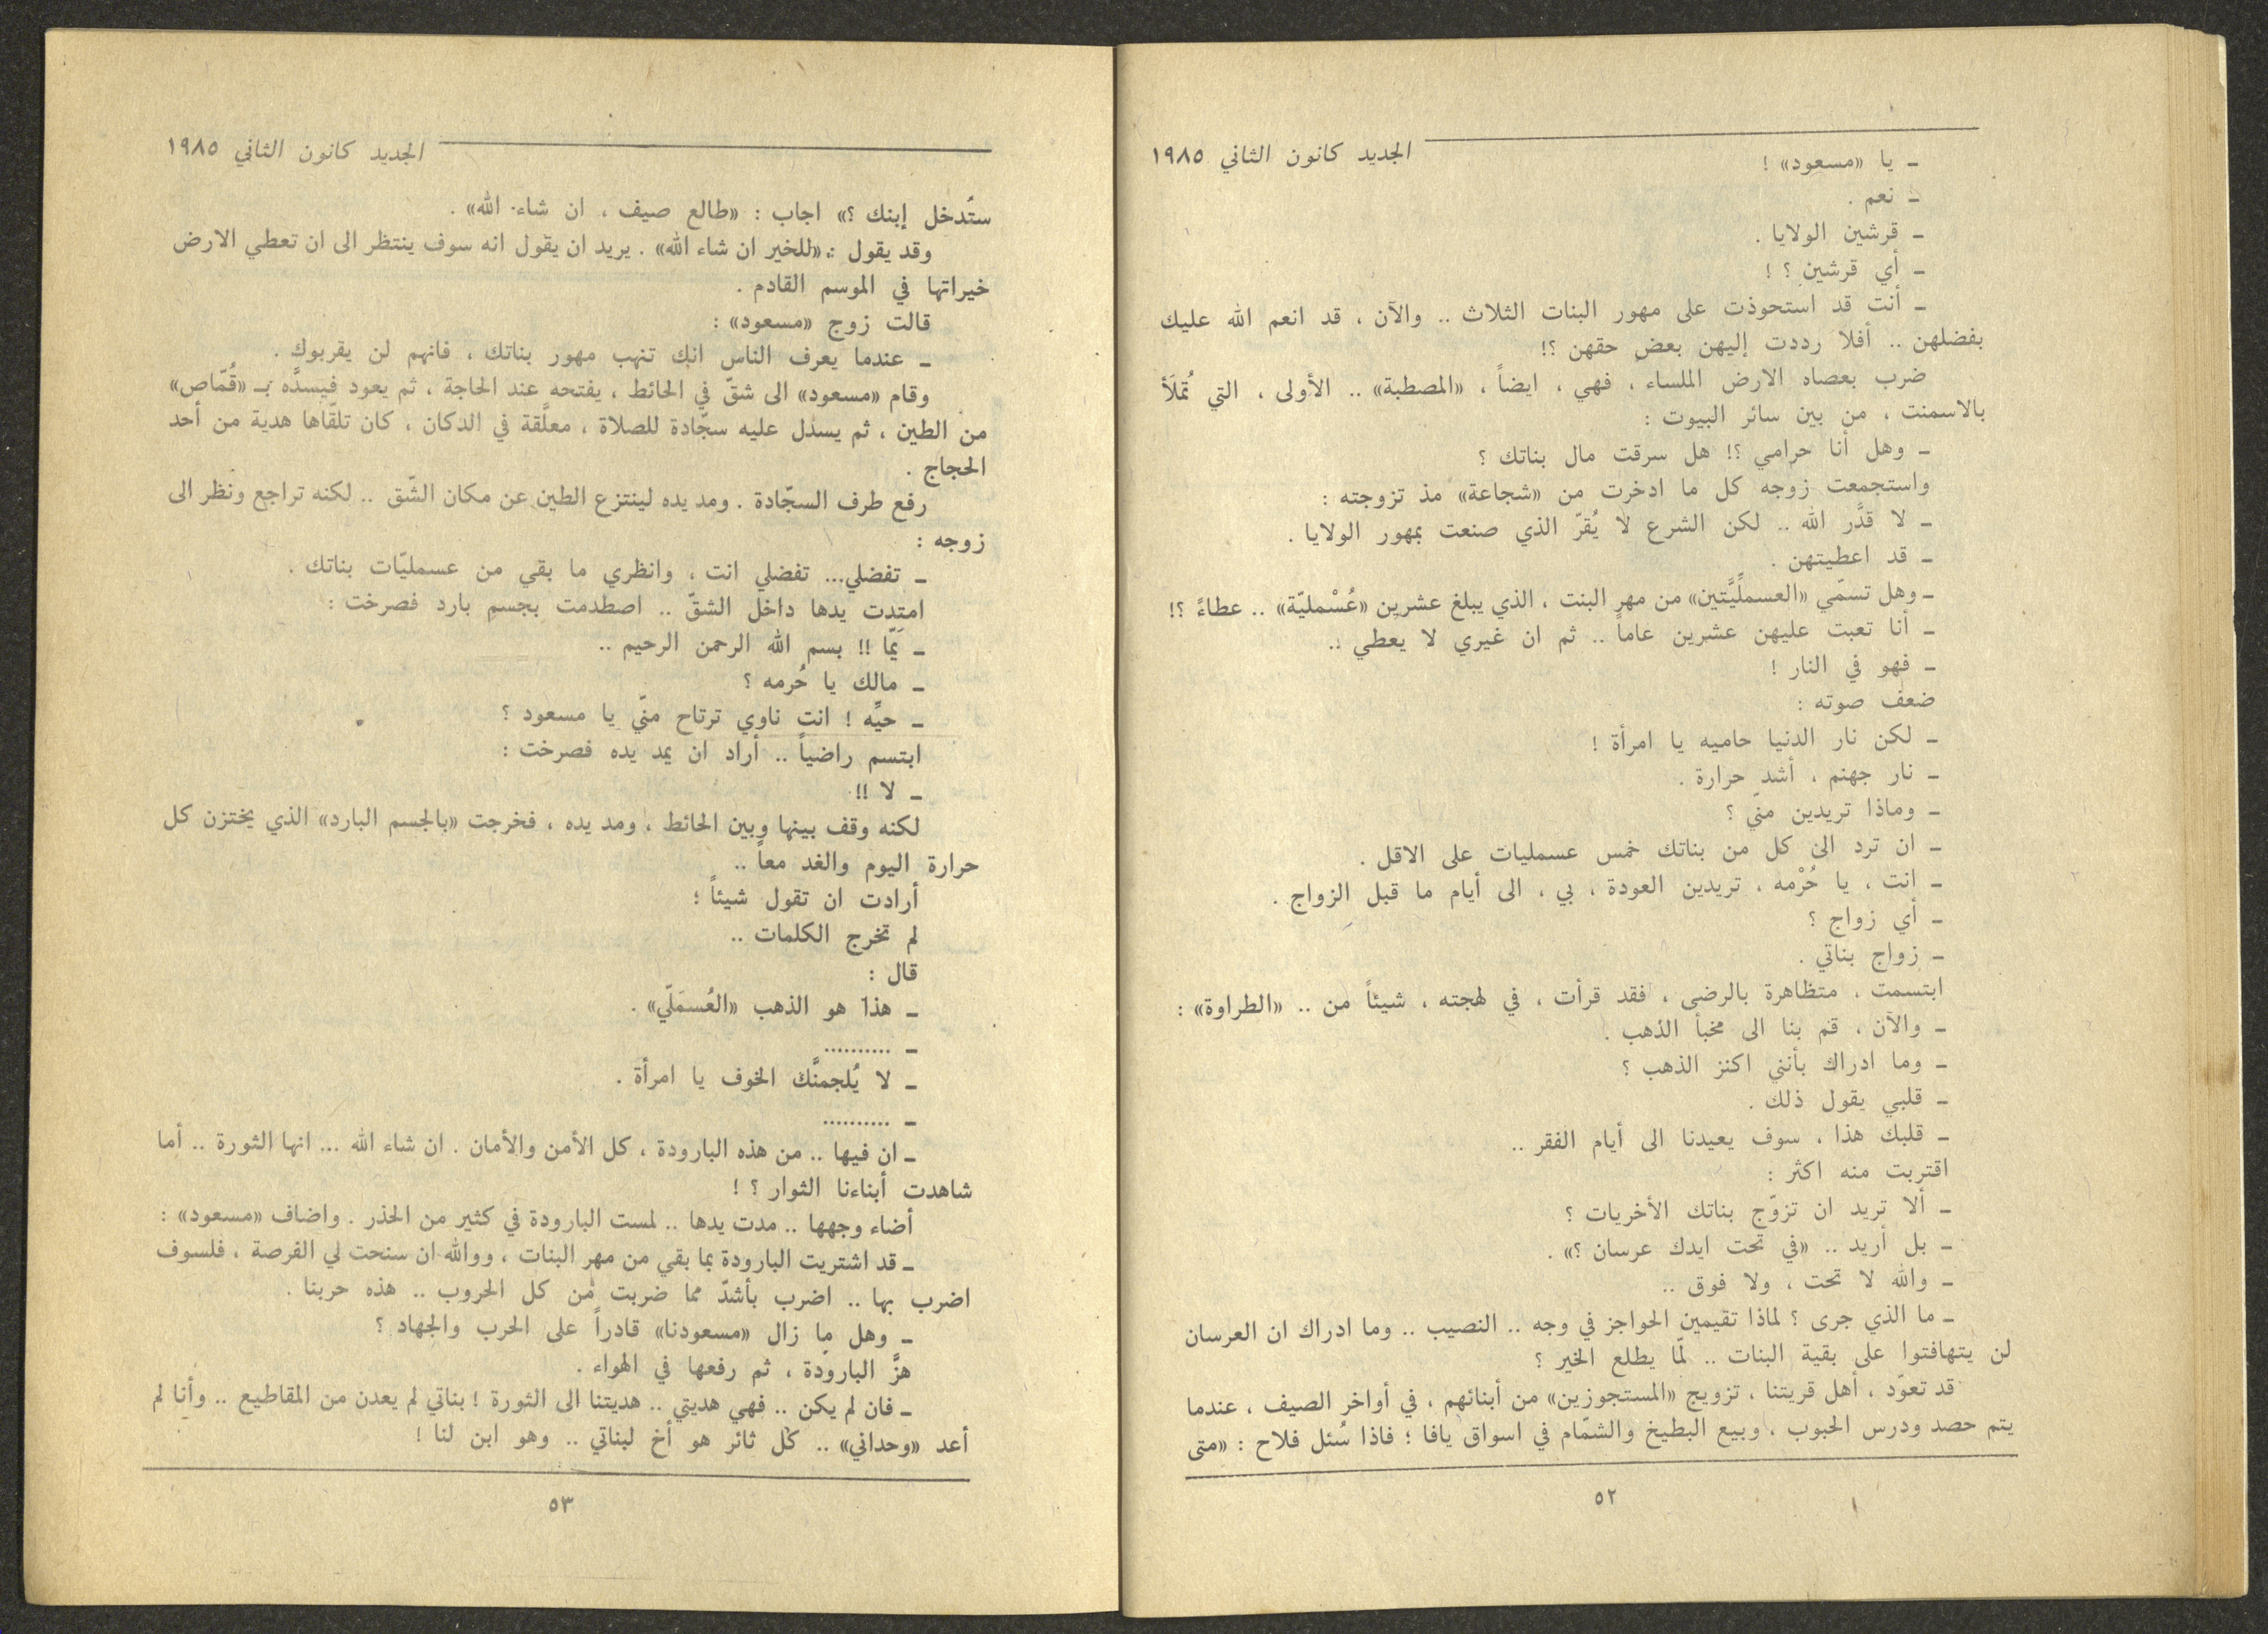 الجديد كانون الثاني ١٩٨٥
ـ يا «مسعود» !
ـ نعم .
ـ قرشين الولايا .
ـ أي قرشين ؟ !
ـ أنت قد استحوذت على مهور البنات الثلاث .. والآن ، قد انعم الله عليك
بفضلهن .. أفلا رددت إليهن بعض حقهن ؟!
ضرب بعصاه الارض الملساء ، فهي ، ايضاً ، «المصطبة» .. الأولى ، التي تُملَأ
بالاسمنت ، من بين سائر البيوت :
ـ وهل أنا حرامي ؟! هل سرقت مال بناتك ؟
واستجمعت زوجه كل ما ادخرت من «شجاعة» مذ تزوجته :
ـ لا قدَّر الله .. لكن الشرع لا يُقرّ الذي صنعت بمهور الولايا .
ـ قد اعطيتهن .
ـ وهل تسمّي «العسملِّيَّتين» من مهر البنت ، الذي يبلغ عشرين «عُسْمليّة» .. عطاءً ؟!
ـ أنا تعبت عليهن عشرين عاماً .. ثم ان غيري لا يعطي ..
ـ فهو في النار !
ضعف صوته :
ـ لكن نار الدنيا حاميه يا امرأة !
ـ نار جهنم ، أشد حرارة .
ـ وماذا تريدين منّي ؟
ـ ان ترد الى كل من بناتك خمس عسمليات على الاقل .
ـ انت ، يا حُرْمه ، تريدين العودة ، بي ، الى أيام ما قبل الزواج .
ـ أي زواج ؟
ـ زواج بناتي .
ابتسمت ، متظاهرة بالرضى ، فقد قرأت ، في لهجته ، شيئاً من .. «الطراوة» :
ـ والآن ، قم بنا الى مخبأ الذهب .
ـ وما ادراك بأنني اكنز الذهب ؟
ـ قلبي يقول ذلك .
ـ قلبك هذا ، سوف يعيدنا الى أيام الفقر ..
اقتربت منه اكثر :
ـ ألا تريد ان تزوّج بناتك الأخريات ؟
ـ بل أريد .. «في تحت ايدك عرسان ؟» .
ـ والله لا تحت ، ولا فوق ..
ـ ما الذي جرى ؟ لماذا تقيمين الحواجز في وجه .. النصيب .. وما ادراك ان العرسان
لن يتهافتوا على بقية البنات .. لمّا يطلع الخير ؟
قد تعوّد ، أهل قريتنا ، تزويج «المستجوزين» من أبنائهم ، في أواخر الصيف ، عندما
يتم حصد ودرس الحبوب ، وبيع البطيخ والشمّام في اسواق يافا ؛ فاذا سُئل فلاح : «متى
٥٢
الجديد كانون الثاني ١٩٨٥
ستُدخل إبنك ؟» اجاب : «طالع صيف ، ان شاء الله» .
وقد يقول : «للخير ان شاء الله» . يريد ان يقول انه سوف ينتظر الى ان تعطي الارض
خيراتها في الموسم القادم .
قالت زوج «مسعود» :
ـ عندما يعرف الناس انك تنهب مهور بناتك ، فانهم لن يقربوك .
وقام «مسعود» الى شقّ في الحائط ، يفتحه عند الحاجة ، ثم يعود فيسدَّه بـ «قُمّاص»
من الطين ، ثم يسدل عليه سجّادة للصلاة ، معلَّقة في الدكان ، كان تلقّاها هدية من أحد
الحجاج .
رفع طرف السجّادة . ومد يده لينتزع الطين عن مكان الشّق .. لكنه تراجع ونظر الى
زوجه :
ـ تفضلي... تفضلي انت ، وانظري ما بقي من عسمليّات بناتك .
امتدت يدها داخل الشقّ .. اصطدمت بجسم بارد فصرخت :
ـ يَمّا !! بسم الله الرحمن الرحيم ..
ـ مالك يا حُرمه ؟
ـ حيِّه ! انت ناوي ترتاح منّي يا مسعود ؟
ابتسم راضياً .. أراد ان يمد يده فصرخت :
ـ لا !!
لكنه وقف بينها وبين الحائط ، ومد يده ، فخرجت «بالجسم البارد» الذي يختزن كل
حرارة اليوم والغد معاً ..
أرادت ان تقول شيئاً ؛
لم تخرج الكلمات ..
قال :
ـ هذا هو الذهب «العُسمَلّي» .
ـ ..........
ـ لا يُلجمنَّك الخوف يا امرأة .
ـ ..........
ـ ان فيها .. من هذه البارودة ، كل الأمن والأمان . ان شاء الله ... انها الثورة .. أما
شاهدت أبناءنا الثوار ؟ !
أضاء وجهها .. مدت يدها .. لمست البارودة في كثير من الحذر . واضاف «مسعود» :
ـ قد اشتريت البارودة بما بقي من مهر البنات ، ووالله ان سنحت لي الفرصة ، فلسوف
اضرب بها .. اضرب بأشدّ مما ضربت من كل الحروب .. هذه حربنا .
ـ وهل ما زال «مسعودنا» قادراً على الحرب والجهاد ؟
هزَّ البارودة ، ثم رفعها في الهواء .
ـ فان لم يكن .. فهي هديتي .. هديتنا الى الثورة ! بناتي لم يعدن من المقاطيع .. وأنا لم
أعد «وحداني» .. كل ثائر هو أخ لبناتي .. وهو ابن لنا !
٥٣